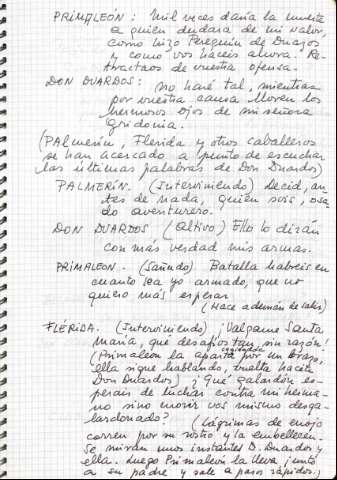 PRIMALEÓN: Mil veces daría la muerte
a quien dudara de mi valor,
como hizo Perequín de Duazos
y como vos hacéis ahora. Re-
tractaos de vuestra ofensa.
DON DUARDOS: no haré tal, mientras
por vuestra causa lloren los
hermosos ojos de mi señora
Gridonia.
(Palmerín, Flerida y otros caballeros
se han acercado a punto de escuchar
las últimas palabras de Don Duardos)
PALMERÍN. (Interviniendo) Decid, an-
tes de nada, quien sois, osa-
do aventurero.
DON DUARDOS (Altivo) Ello lo dirán
con más verdad mis armas.
PRIMALEON. (Sañudo) Batalla habreis en
cuanto sea yo armado, que no
quiero más esperar
(Hace ademán de salir)
FLÉRIDA. (Interviniendo) ¡Valgame Santa
María, que desafios tan sin razón!
(Primaleón la aparta cogiéndola por un brazo,
ella sigue hablando, vuelta hacia
Don Duardos) ¿Qué galardón es-
perais de luchar contra mi herma-
no sino morir vos mismo desga-
lardonado? (Lágrimas de enojo
corren por su rostro y la embellecen.
Se miran unos instantes D. Duardos y
ella. Luego Primaleón la lleva junto
a su padre y sale a pasos rápidos.)